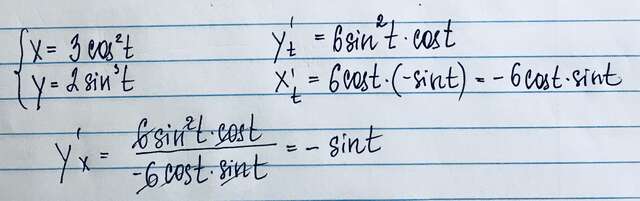 x = 3 cos²t
y = 2 sin³t
y't = 6 sin²t · cost
x't = 6cost · (-sint) = - 6cost · sint
y'x = 6 sin²t · cost / -6 cost · sint = - sint